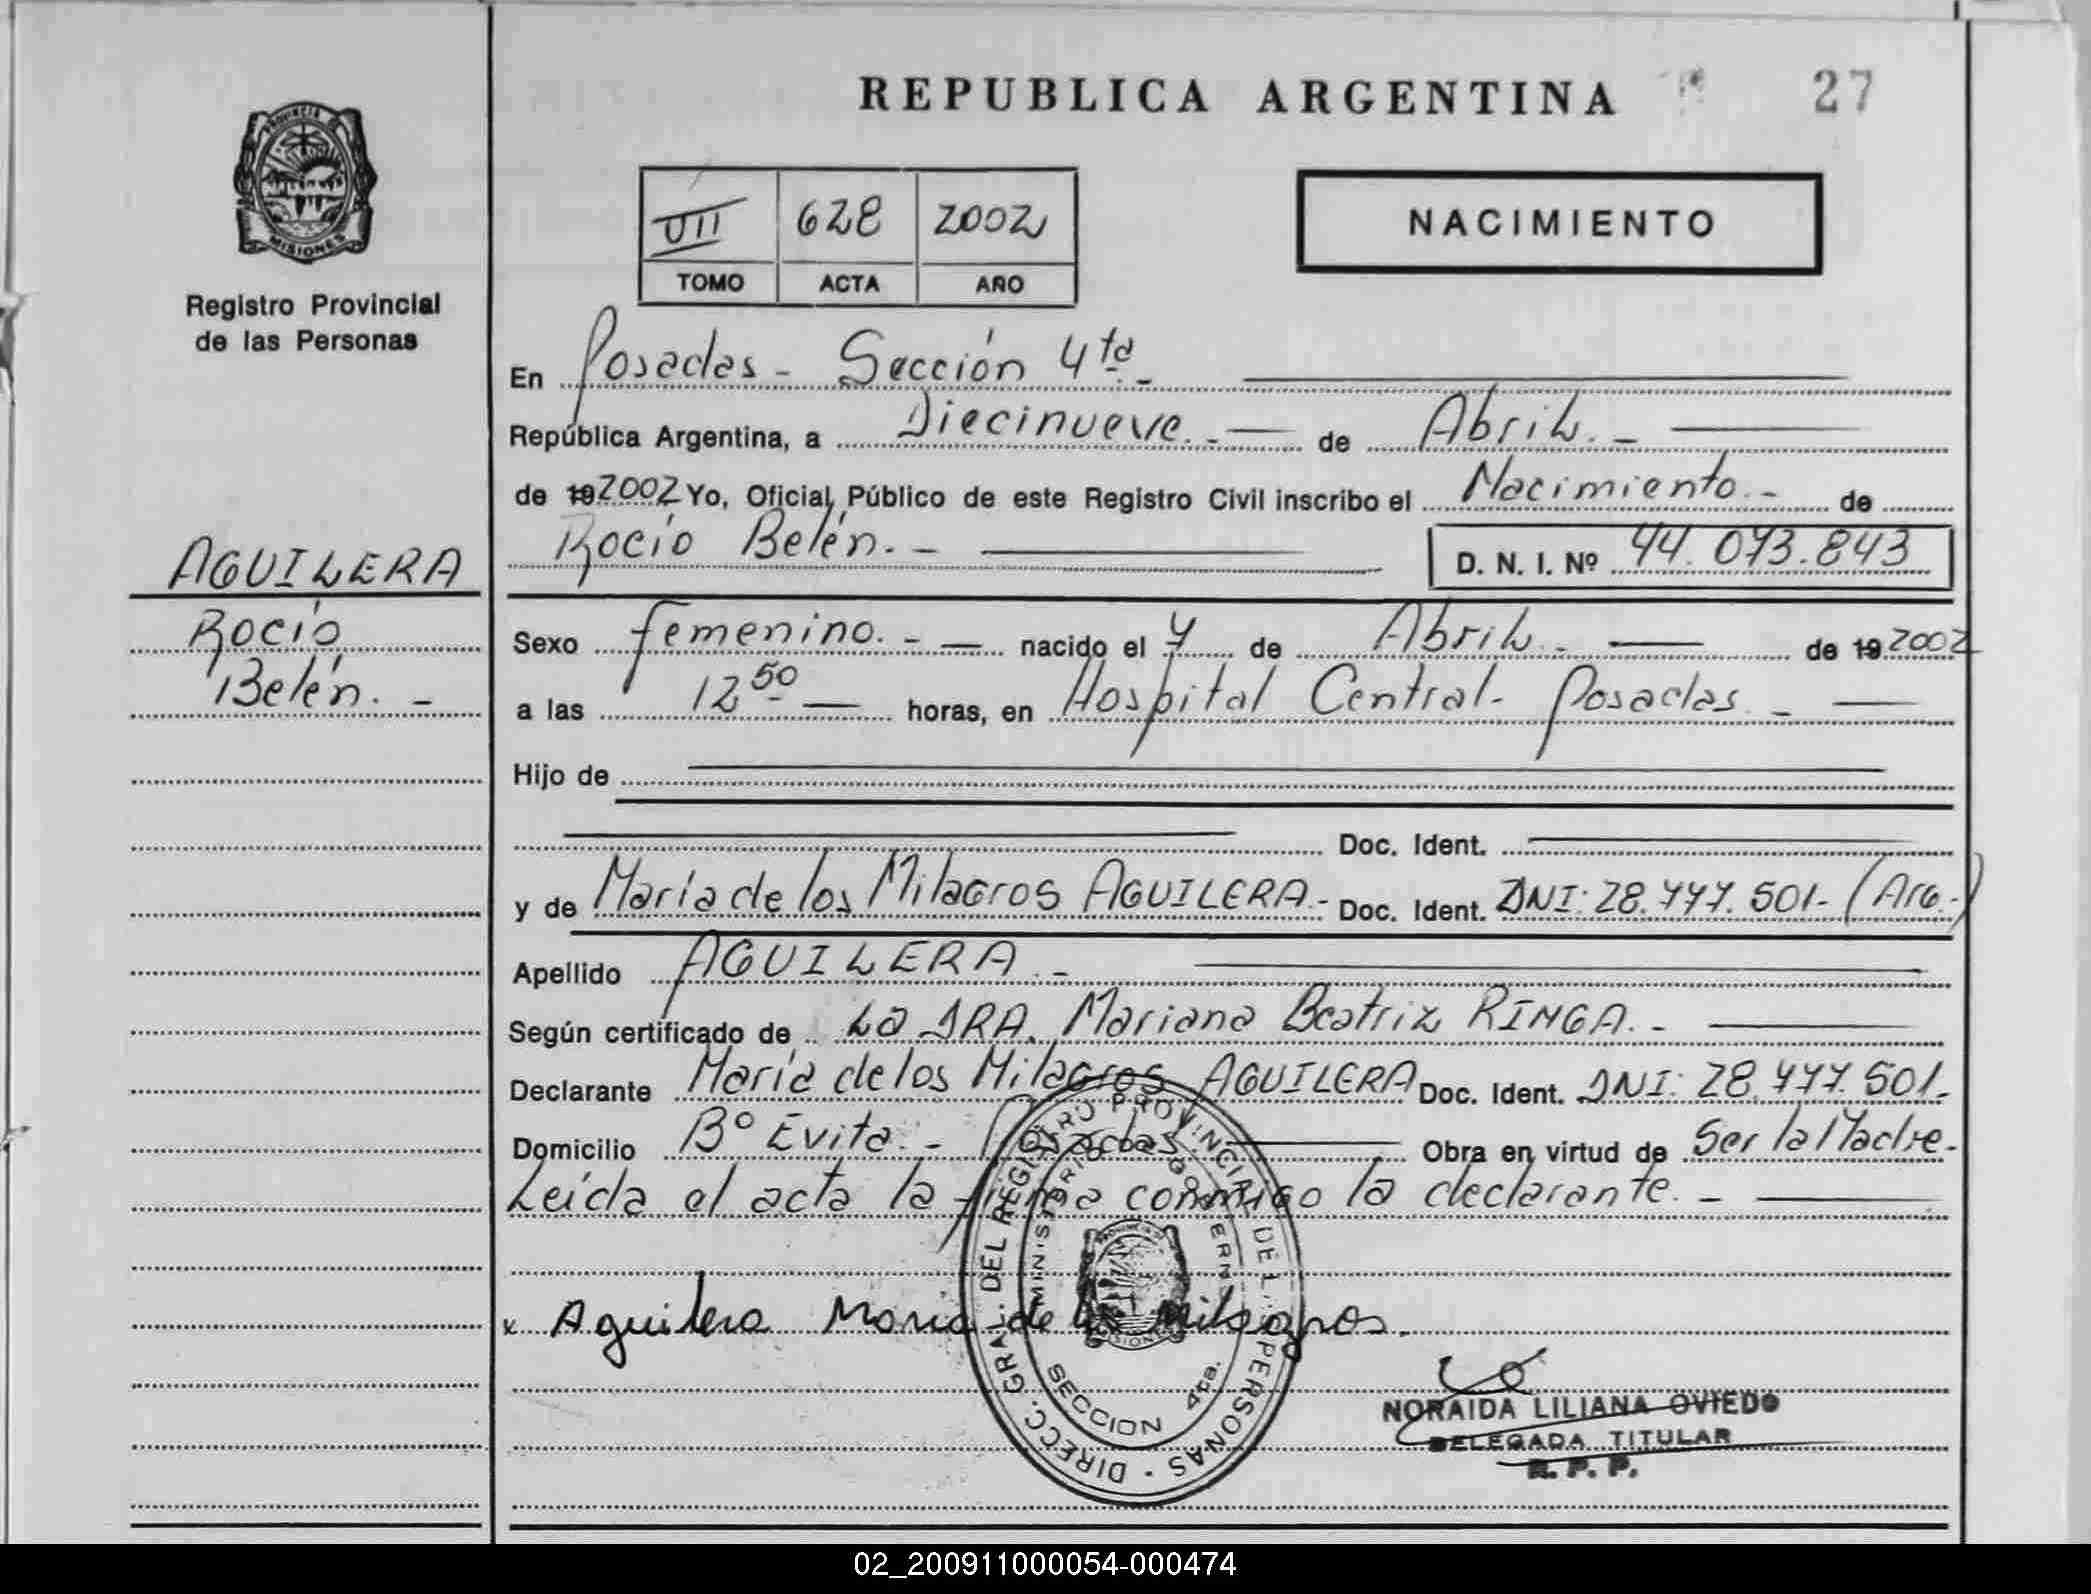 REPUBLICA ARGENTINA 27
PROVINCIA DE
MISIONES
Registro Provincial
de las Personas
VII 628 2002
TOMO ACTA AÑO
NACIMIENTO
En Posadas - Sección 4ta -
República Argentina, a Diecinueve. - de Abril. -
de 19 2002 Yo, Oficial Público de este Registro Civil inscribo el Nacimiento. - de
Rocío Belén. - D. N. I. Nº 44.073.843
AGUILERA
Rocío
Belén. -
Sexo femenino. - nacido el 4 de Abril. - de 19 2002
a las 12 50 horas, en Hospital Central - Posadas. -
Hijo de
Doc. Ident.
y de María de los Milagros AGUILERA. - Doc. Ident. DNI: 28.777.501.- (Arg.-)
Apellido AGUILERA. -
Según certificado de La DRA. Mariana Beatriz RINGA. -
Declarante María de los Milagros AGUILERA Doc. Ident. DNI: 28.777.501.-
Domicilio Bº Evita. - Posadas Obra en virtud de Ser la Madre.-
Leída el acta la firma conmigo la declarante. -
x Aguilera Maria de los milagros.
DIRECC. GRAL. DEL REGISTRO PROVINCIAL DE L. PERSONAS -
MINISTERIO GOBIERNO
SECCION 4ta.
NORAIDA LILIANA OVIEDO
DELEGADA TITULAR
R. P. P.
02_200911000054-000474